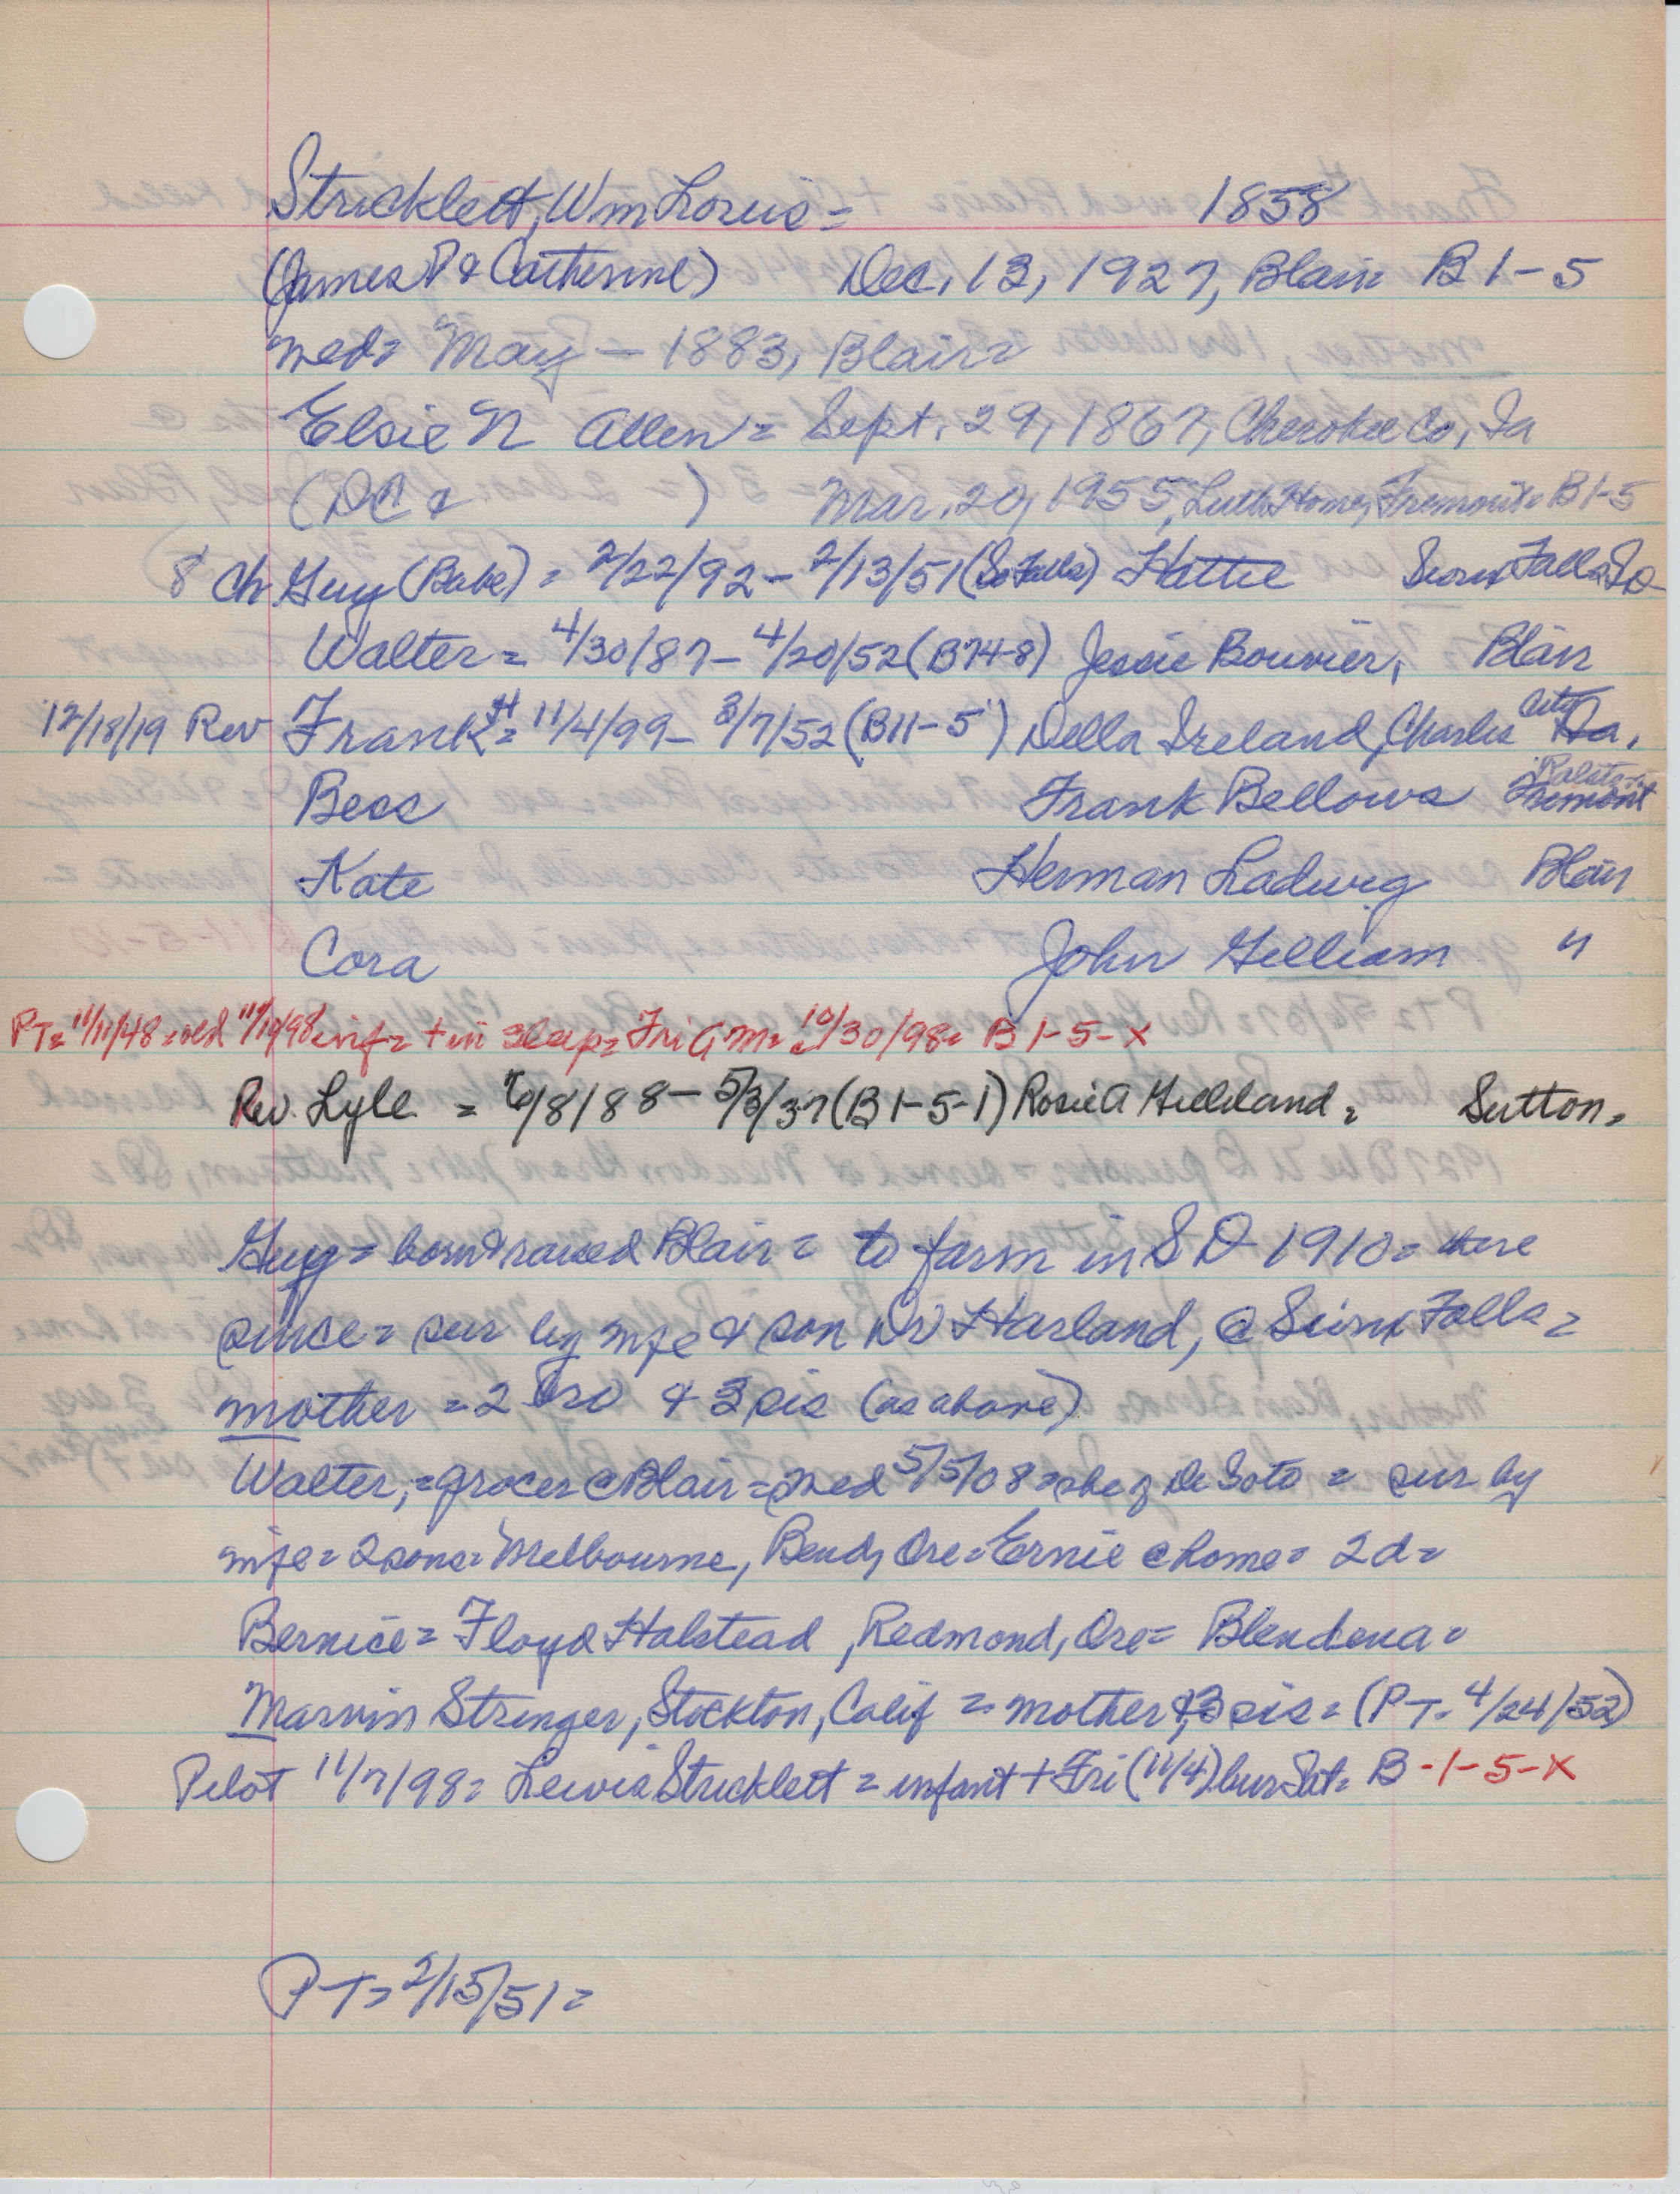 Stricklett, Wm Louis = 1858
(James P & Catherine) Dec. 13, 1927, Blair B 1-5
med = May — 1883, Blair =
Elsie N Allen = Sept. 29, 1867, Cherokee Co, Ia
(DC & ) Mar. 20, 1955, Luth Home, Fremont = B 1-5
8 Ch Guy (Babe) = 2/22/92 - 2/13/51 (So Falls) Hattie Sioux Falls SD
Walter = 4/30/87 - 4/20/52 (B74-8) Jessie Bouvier, Blair
12/18/19 Rev Frank H = 11/4/99 - 3/7/52 (B11-5) Della Ireland, Charles City Ia.
Ralston
Bess Frank Bellows Fremont
Kate Herman Ladwig Blair
Cora John Gilliam "
PT = 11/11/48 = Wed 11/10/98 = inf = + in sleep = Fri am = 10/30/98 = B 1-5-X
Rev. Lyle = 6/8/88 - 5/3/37 (B 1-5-1) Rosie A Gilleland = Sutton =
Guy = born & raised Blair = to farm in SD 1910 = there
since = sur by mfe & son Dr Harland, @ Sioux Falls =
mother = 2 bro & 3 sis (as above)
Walter, = grocer @ Blair = med 5/5/08 = she of De Soto = sur by
mfe = 2 sons = Melbourne, Bend, Ore = Ernie @ home = 2 d =
Bernice = Floyd Halstead, Redmond, Ore = Blendena =
Marvin Stringer, Stockton, Calif = mother & 3 sis = (PT - 4/24/52)
Pilot 11/7/98 = Lewis Stricklett = infant + Fri (11/4) bur Sat = B-1-5-X
PT = 2/15/51 =